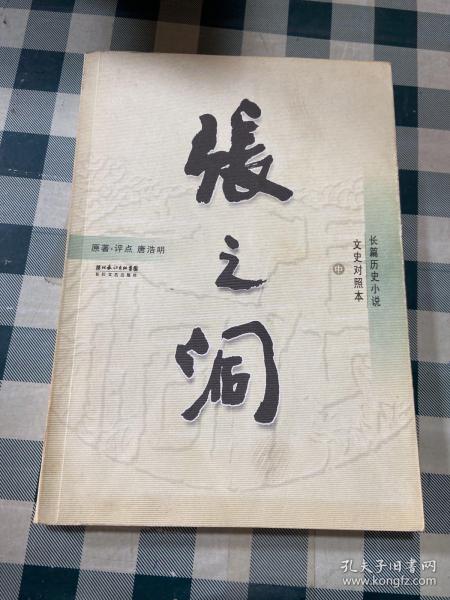 張之洞
长篇历史小说
文史对照本
中
原著·评点 唐浩明
长江文艺出版社
孔夫子旧书网
www.kongfz.com